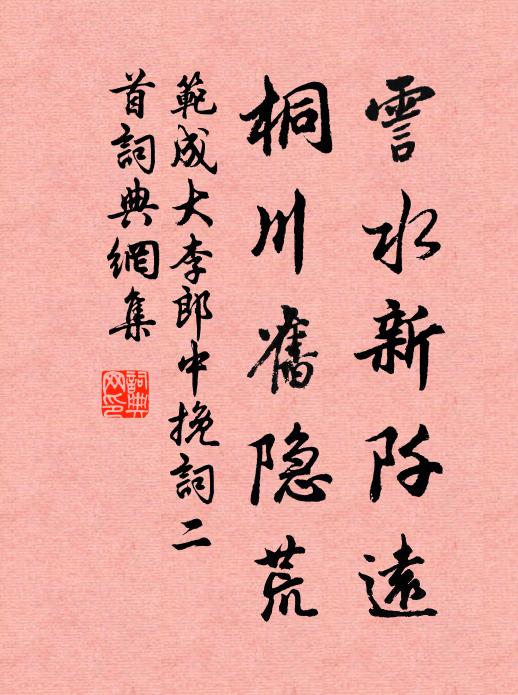 霅水新阡遠
桐川舊隐荒
範成大李郎中挽詞二
首詞典網集
詞典
网印